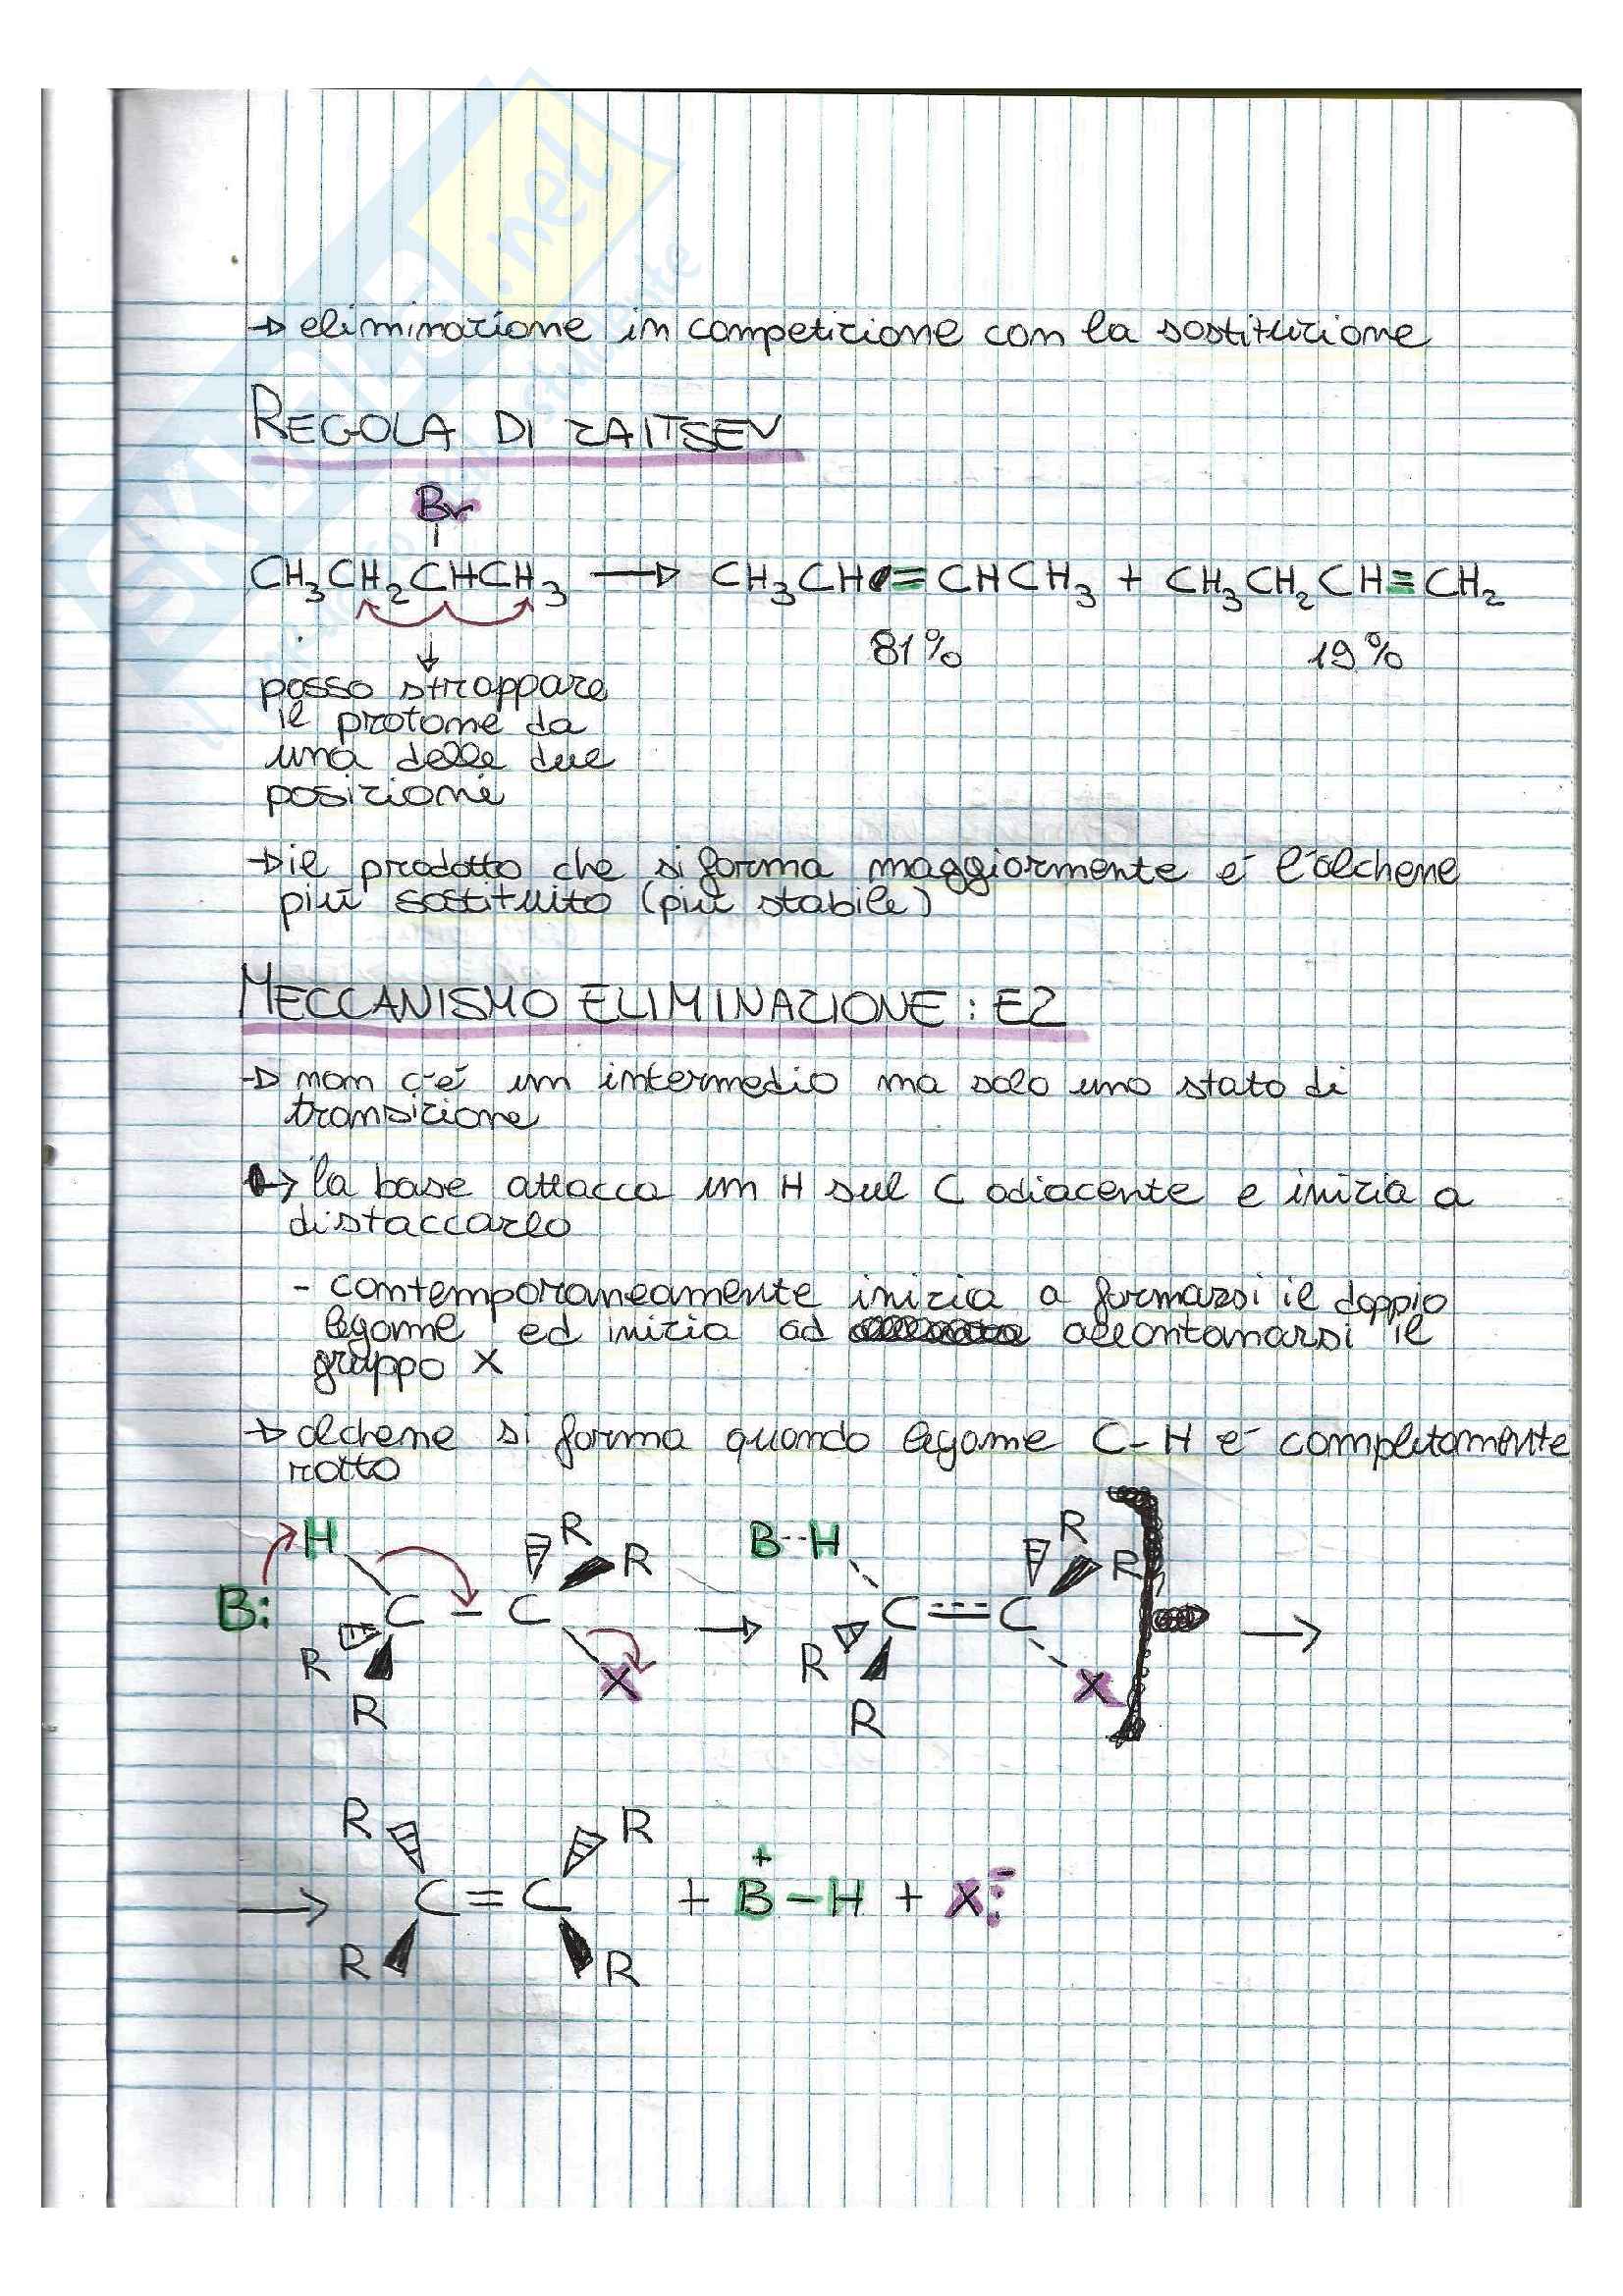 → eliminazione in competizione con la sostituzione
REGOLA DI ZAITSEV
Br
CH₃CH₂CHCH₃ → CH₃CH=CHCH₃ + CH₃CH₂CH=CH₂
81% 19%
posso strappare
il protone da
una delle due
posizioni
→ il prodotto che si forma maggiormente è l'alchene
più sostituito (più stabile)
MECCANISMO ELIMINAZIONE: E2
→ non c'è un intermedio ma solo uno stato di
transizione
→ la base attacca un H sul C adiacente e inizia a
distaccarlo
- contemporaneamente inizia a formarsi il doppio
legame ed inizia ad allontanarsi il
gruppo X
→ alchene si forma quando legame C-H è completamente
rotto
H R R B--H R R
B: C - C → C=C →
R R X R R X
R R
→ C=C + B⁺-H + X:⁻
R R
SKUOLA.net